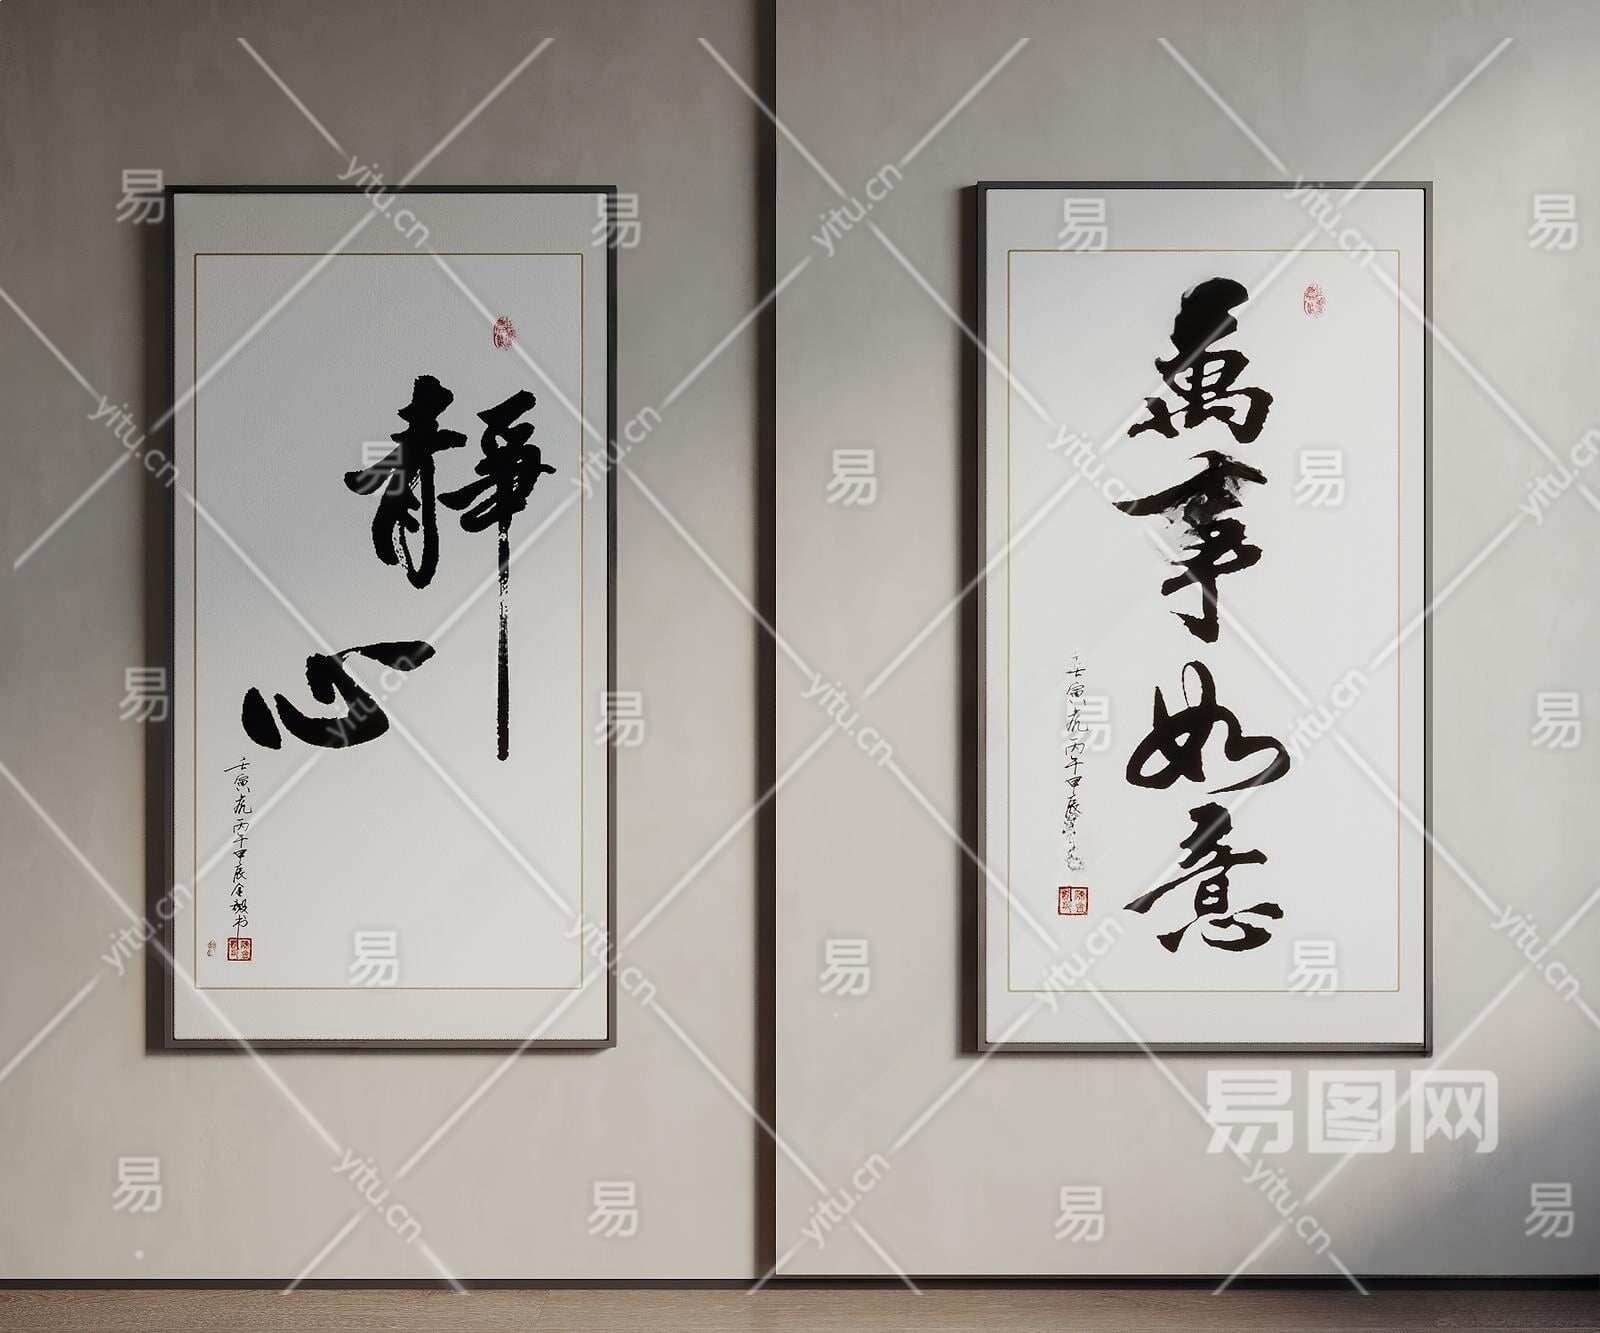 靜
心
壬寅虎丙午甲辰金毅书
萬
事
如
意
壬寅虎丙午甲辰
易图网
yitu.cn